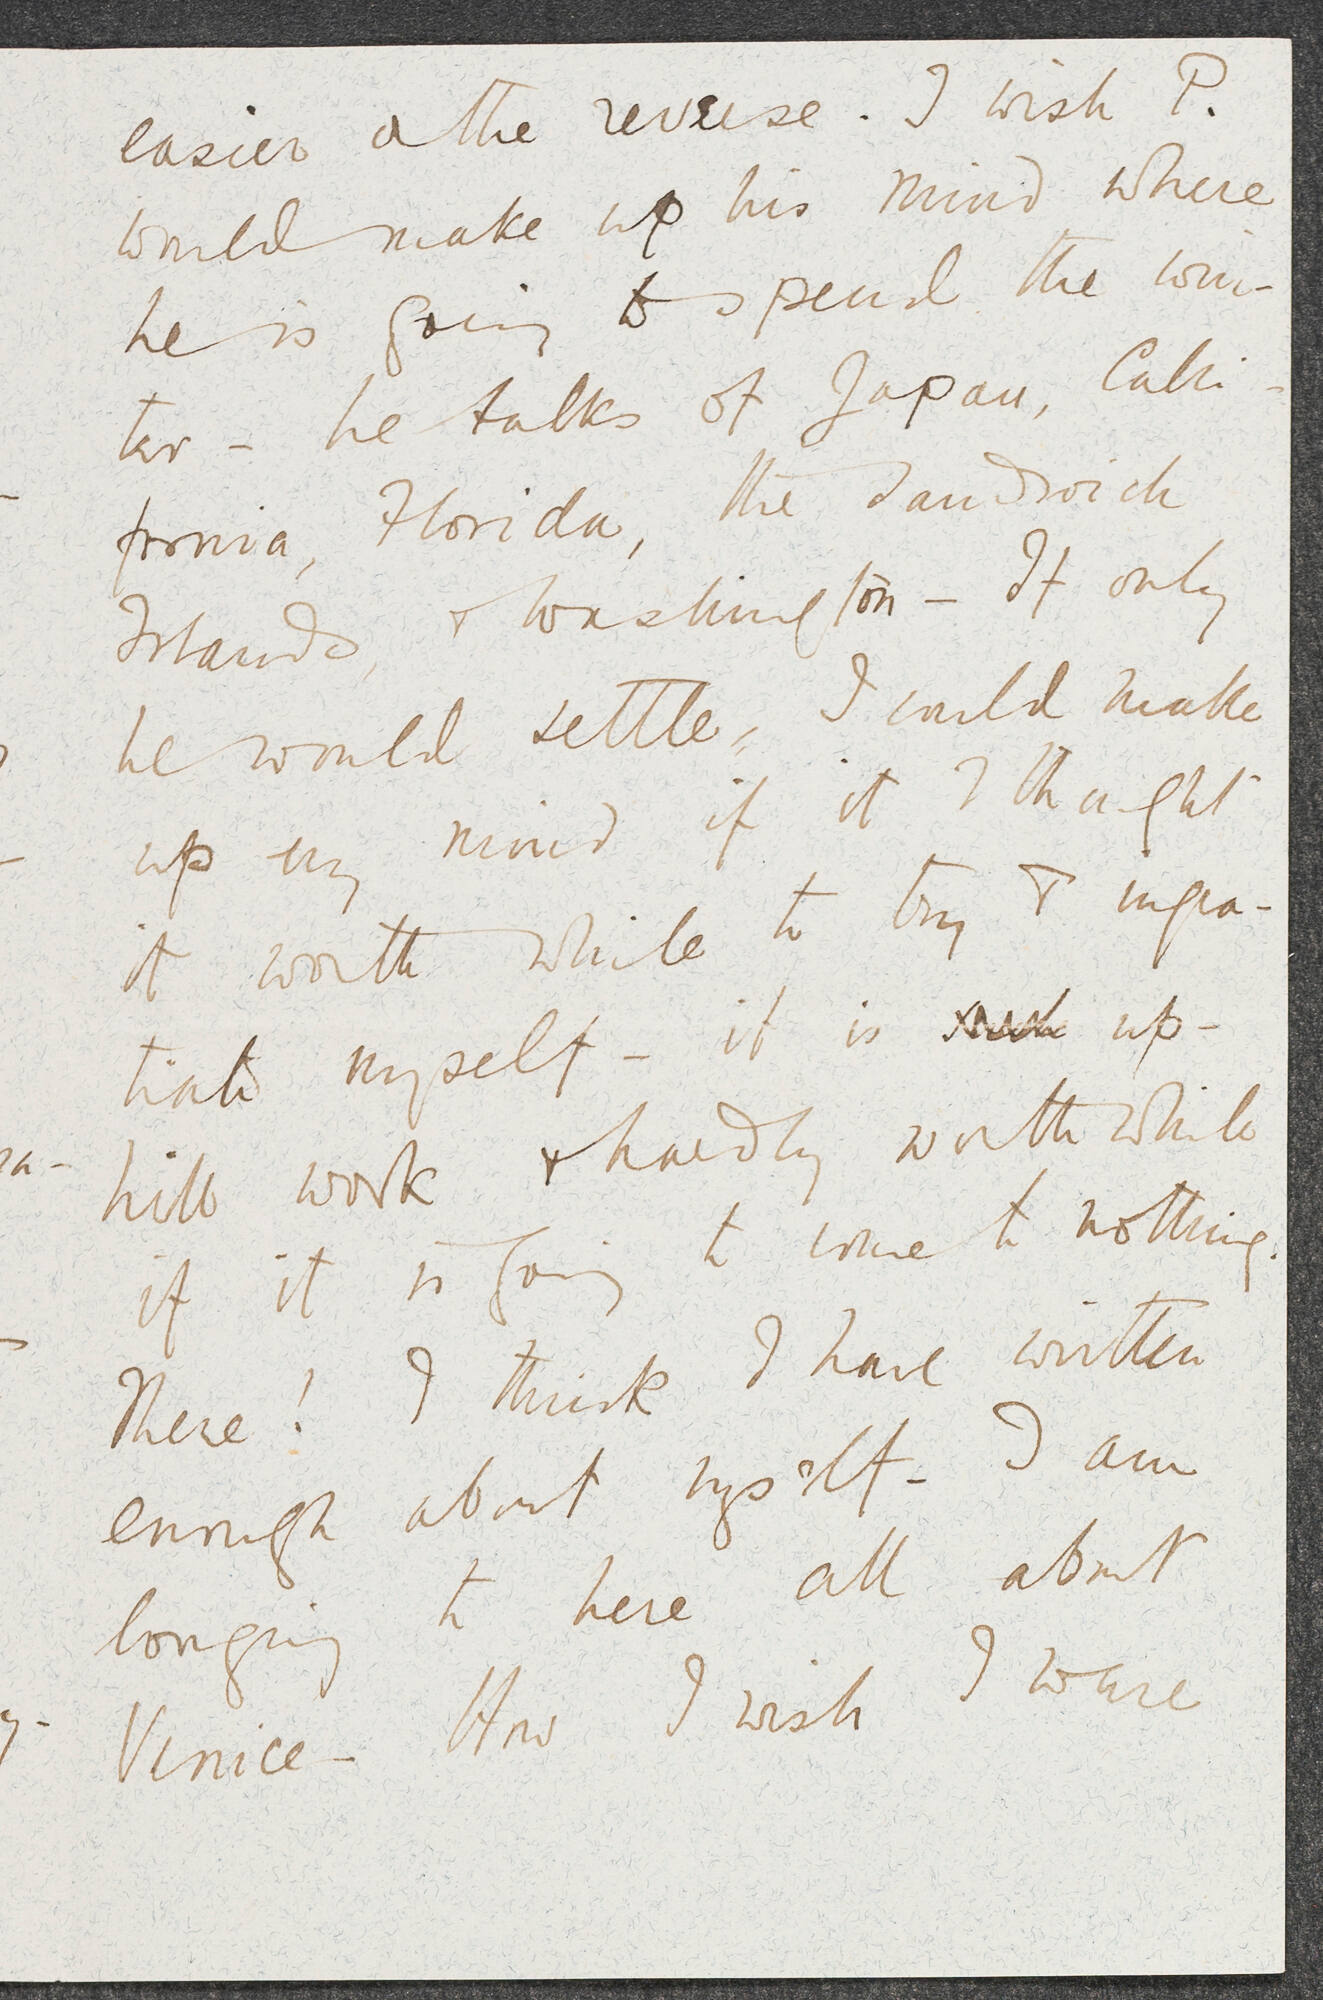 easier or the reverse. I wish P.
would make up his mind where
he is going to spend the win-
ter - he talks of Japan, Cali-
fornia, Florida, the Sandwich
Islands, & Washington - If only
he would settle, I could make
up my mind if it I thought
it worth while to try & ingra-
tiate myself - it is up-
hill work & hardly worth while
if it is going to come to nothing.
There! I think I have written
enough about myself - I am
longing to here all about
Venice - How I wish I were